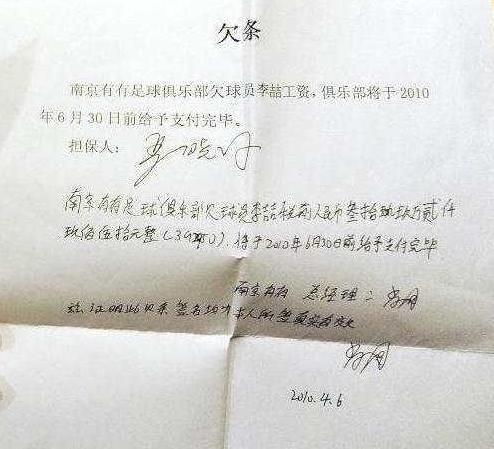 欠条
南京有有足球俱乐部欠球员李喆工资，俱乐部将于2010
年6月30日前给予支付完毕。
担保人：
南京有有足球俱乐部欠球员李喆税前人民币叁拾玖万贰仟
玖佰伍拾元整（392950）。将于2010年6月30日前给予支付完毕
南京有有 总经理：
注：证明此欠条签名均为本人所签真实有效
2010.4.6